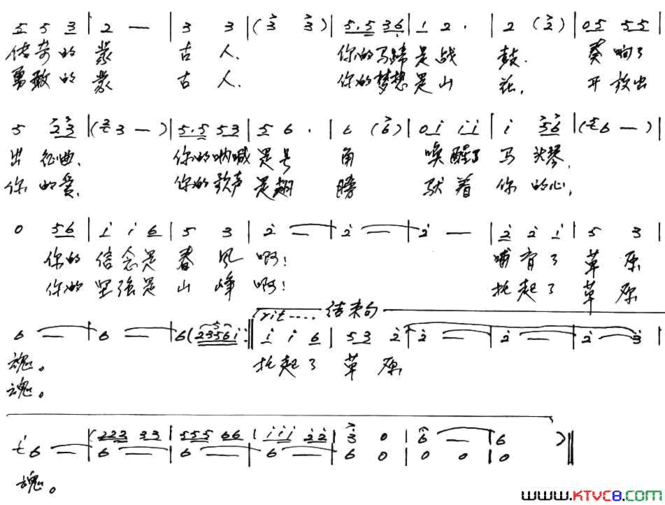 5 5 3 | 2 — | 3 3 | (3 3) | 5.5 3 6 | 1 2 . | 2 (2) | 0 5 5 5 |
传奇的蒙古人. 你的马蹄是战鼓. 奏响了
勇敢的蒙古人. 你的梦想是山花, 开放出
5 2 3 | 3 — ) | 5.5 5 3 | 5 6 . | 6 (6) | 0 i i i | i 5 6 | 6 — ) |
出征曲, 你的呐喊是号角 唤醒了马头琴,
你的爱, 你的歌声是翅膀 驮着你的心,
0 5 6 | i i 6 | 5 3 | 2 — | 2 — | 2 — | 2 2 i | 5 3 |
你的信念是春风啊! 哺育了草原
你的坚强是山峰啊! 托起了草原
rit.... 结束句
6 — | 6 — | 6 ( 2 3 5 6 i :‖ i i 6 | 5 3 2 | 2 — | 2 — | 2 3 |
魂。 托起了草原
魂。
(2 2 3 3 3 | 5 5 5 6 6 | i i i 2 2 | 3 0 | 6 — | 6 ) ‖
6 — | 6 — | 6 — | 6 — | 6 0 | 0 0 | 0
魂。
www.KTVC8.com